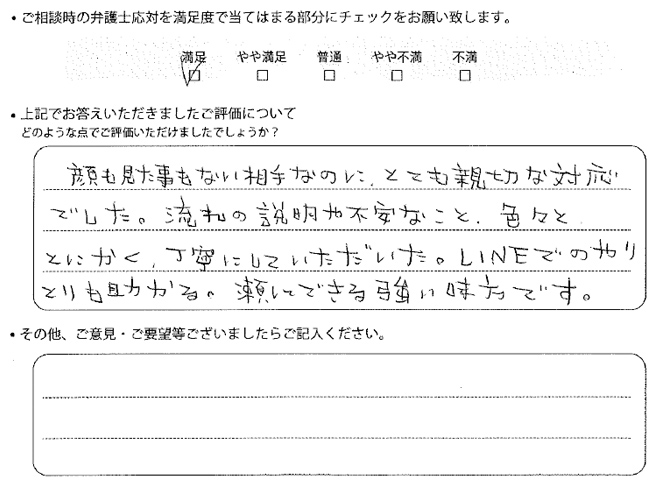 • ご相談時の弁護士応対を満足度で当てはまる部分にチェックをお願い致します。
満足 やや満足 普通 やや不満 不満
• 上記でお答えいただきましたご評価について
どのような点でご評価いただけましたでしょうか?
顔も見た事もない相手なのに、とても親切な対応
でした。流れの説明や不安なこと、色々と
とにかく、丁寧にしていただいた。LINEでのやり
とりも助かる。瀬しできる強い味方です。
• その他、ご意見・ご要望等ございましたらご記入ください。